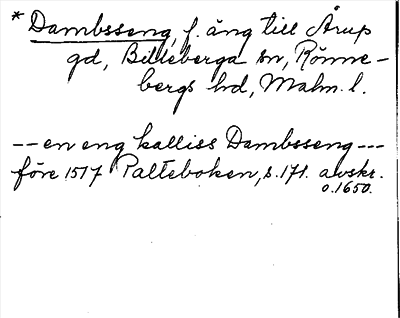 * Dambsseng, f. äng till Årup
gd, Billeberga sn, Rönne-
bergs hd, Malm. l.
-- en eng kalliss Dambsseng ---
före 1517 Palteboken, s. 171. avskr.
o. 1650.